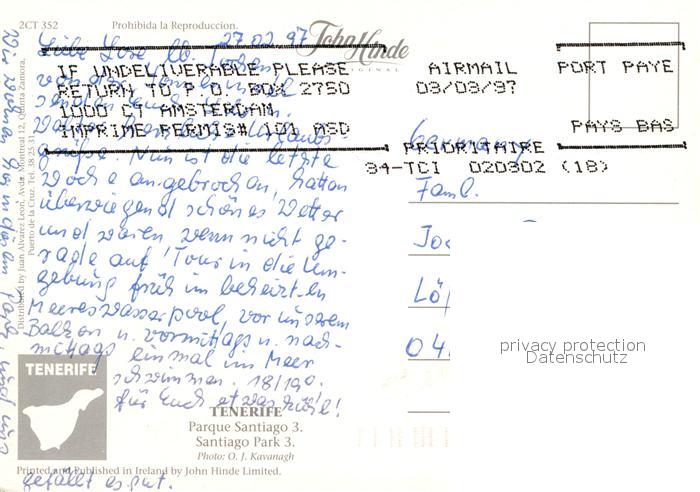 2CT 352
Prohibida la Reproduccion.
27.02.97
John Hinde
ORIGINAL
IF UNDELIVERABLE PLEASE
RETURN TO P.O. BOX 2750
1000 CT AMSTERDAM
IMPRIME PERMIS# 101 ASD
AIRMAIL
03/03/97
PORT PAYE
PAYS BAS
PRIORITAIRE
34-TCI 020302 (18)
Liebe
grüße. Nun ist die letzte
Woche angebrochen, hatten
überwiegend schönes Wetter
und waren, wenn nicht ge-
rade auf Tour in die Um-
gebung früh im beheizten
Meereswasserpool, vor unserem
Balkon u. vormittags u. nach-
mittags einmal im Meer
schwimmen. 18/19°.
für Euch etwas kühl!
Wir wohnen
Park, und uns
gefällt es gut.
Germany
Faml.
Jo
Lö
04
privacy protection
Datenschutz
Distributed by Juan Alvarez Leon, Avda. Montreal 12, Quinta Zamora,
Puerto de la Cruz. Tel. 38 25 31
TENERIFE
TENERIFE
Parque Santiago 3.
Santiago Park 3.
Photo: O. J. Kavanagh
Printed and Published in Ireland by John Hinde Limited.